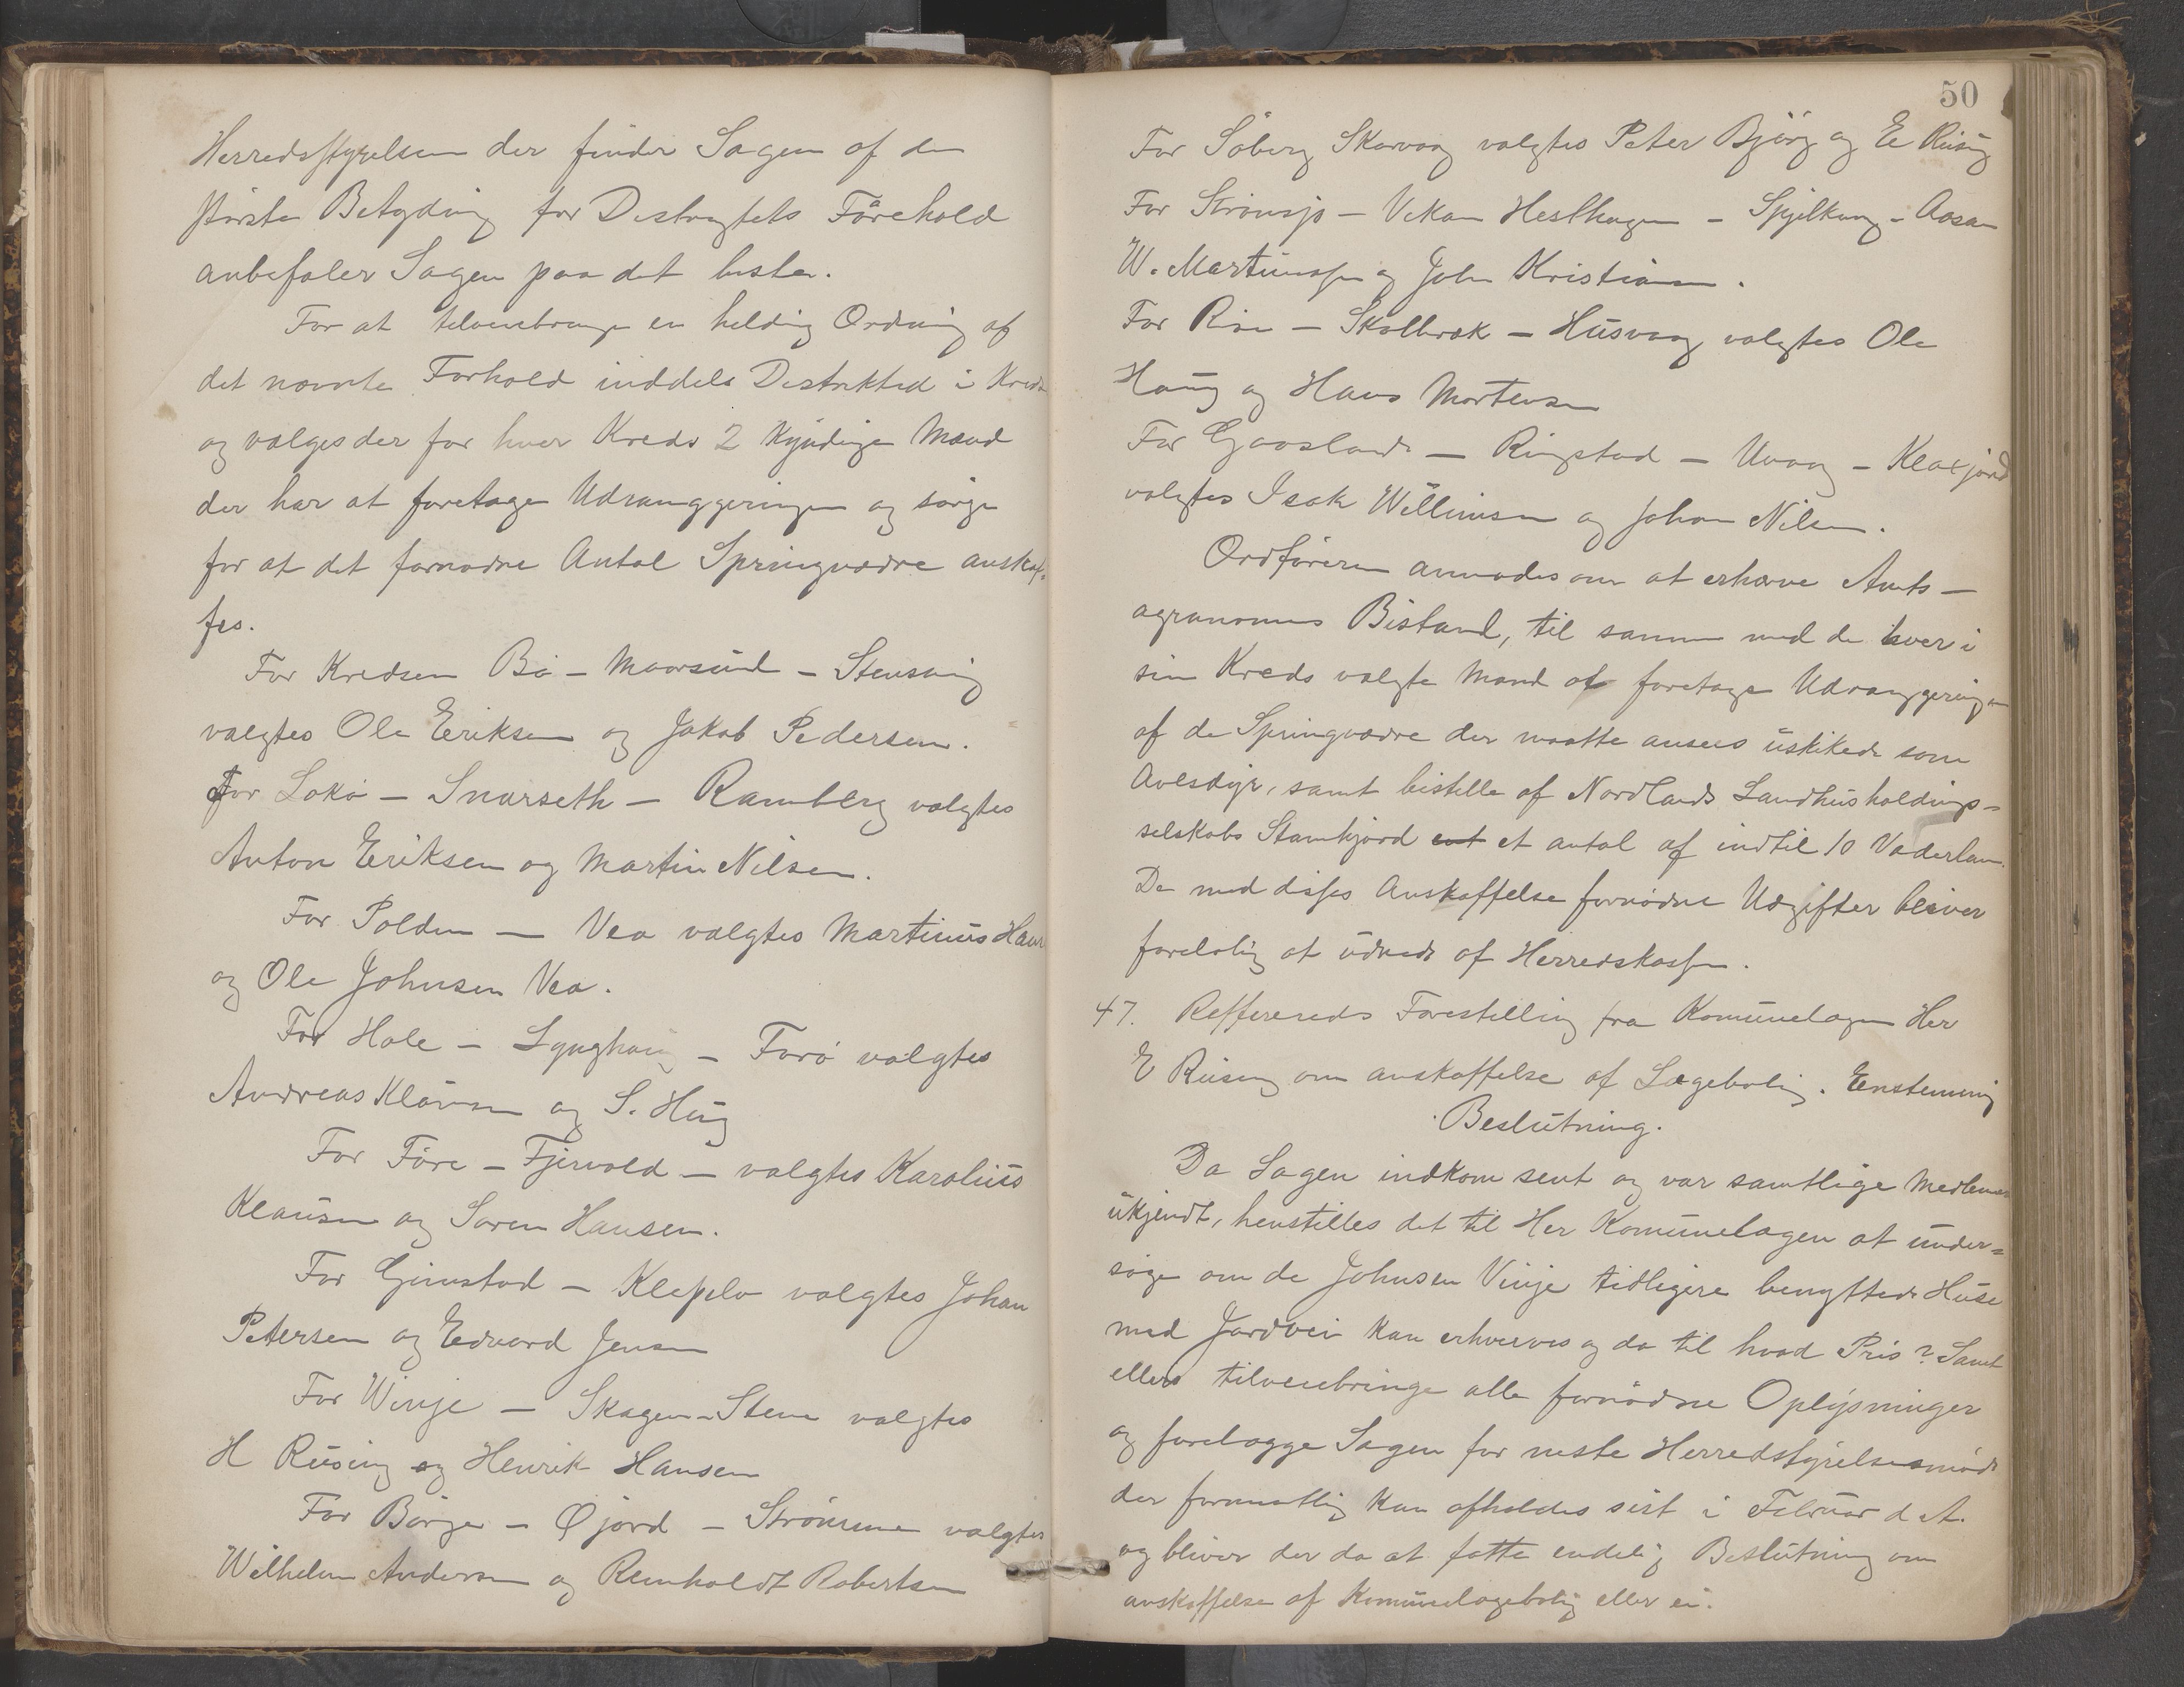 Herredsstyrelsen der finder Sagen af den
største Betydning for Distrigtets Fårehold
anbefaler Sagen paa det beste.
For at tilveiebringe en heldig Ordning af
det nævnte Forhold inddels Distrikted i Kredse
og vælges der for hver Kreds 2 Kyndige Mænd
der har at foretage Udrangeringen og sørge
for at det fornødne Antal Springvædre anskaf-
fes.
For Kredsen Bø - Maarsund - Steinsving
valgtes Ole Eriksen og Jakob Pedersen.
For Lokø - Snarseth - Ramberg valgtes
Anton Eriksen og Martin Nilsen.
For Polden - Vea valgtes Martinus Haur
og Ole Johnsen Vea.
For Hole - Lynghaug - Forø valgtes
Andreas Klausen og S. Hug
For Føre - Fjervold - valgtes Karolius
Klausen og Søren Hansen.
For Gimstad - Klepelv valgtes Johan
Petersen og Edvard Jensen
For Winje - Skagen - Steine valgtes
H Rusing og Henrik Hansen
For Børge - Øjord - Strømme valgtes
Wilhelm Andersen og Reinholdt Robertsen
50
For Søberg Skarvaag valgtes Peter Bjørg og E Rusing
For Strømsjø - Vikan Hesthagen - Spjilkung - Aasan
W. Martinussen og John Kristiansen.
For Rise - Skalbræk - Husvaag valgtes Ole
Haug og Hans Mortensen
For Gaasland - Ringstad - Uvaag - Klaxjord
valgtes Isak Willumsen og Johan Nilsen.
Ordføreren anmodes om at erhærve Amts-
agronomens Bistand, til sammen med de hver i
sin Kreds valgte Mænd at foretage Udrangeringen
af de Springvædre der maatte ansees uskikede som
Avlsdyr, samt bestille af Nordlands Landhusholdings-
selskabs Stamhjord et antal af indtil 10 Væderlam.
De med disses Anskaffelse fornødne Udgifter bliver
foreløbig at udrede af Herredskassen.
47. Reffereredes Forestilling fra Komunelægen Her
E Rusing om anskaffelse af Lægebolig. Eenstemmig
Beslutning.
Da Sagen indkom sent og var samtlige Medlemer
ukjendt, henstilles det til Her Komunelægen at under-
søge om de Johnsen Vinje tidligere benyttede Huse
med Jordvei kan erhverves og da til hvad Pris? Samt
ellers tilveiebringe alle fornødne Oplysninger
og forelægge Sagen for neste Herredstyrelsesmøde
der formentlig kan afholdes sist i Februar d. A.
og bliver der da at fatte endelig Beslutning om
anskaffelse af Komunelægebolig eller ei.